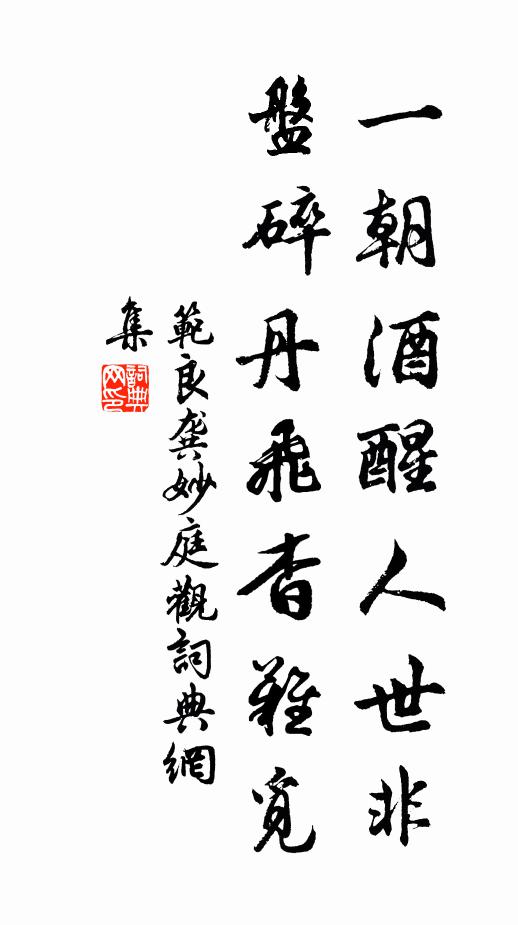 一朝酒醒人世非
盤碎丹飛杳難覓
範良龔妙庭觀詞典網
集
詞典網印